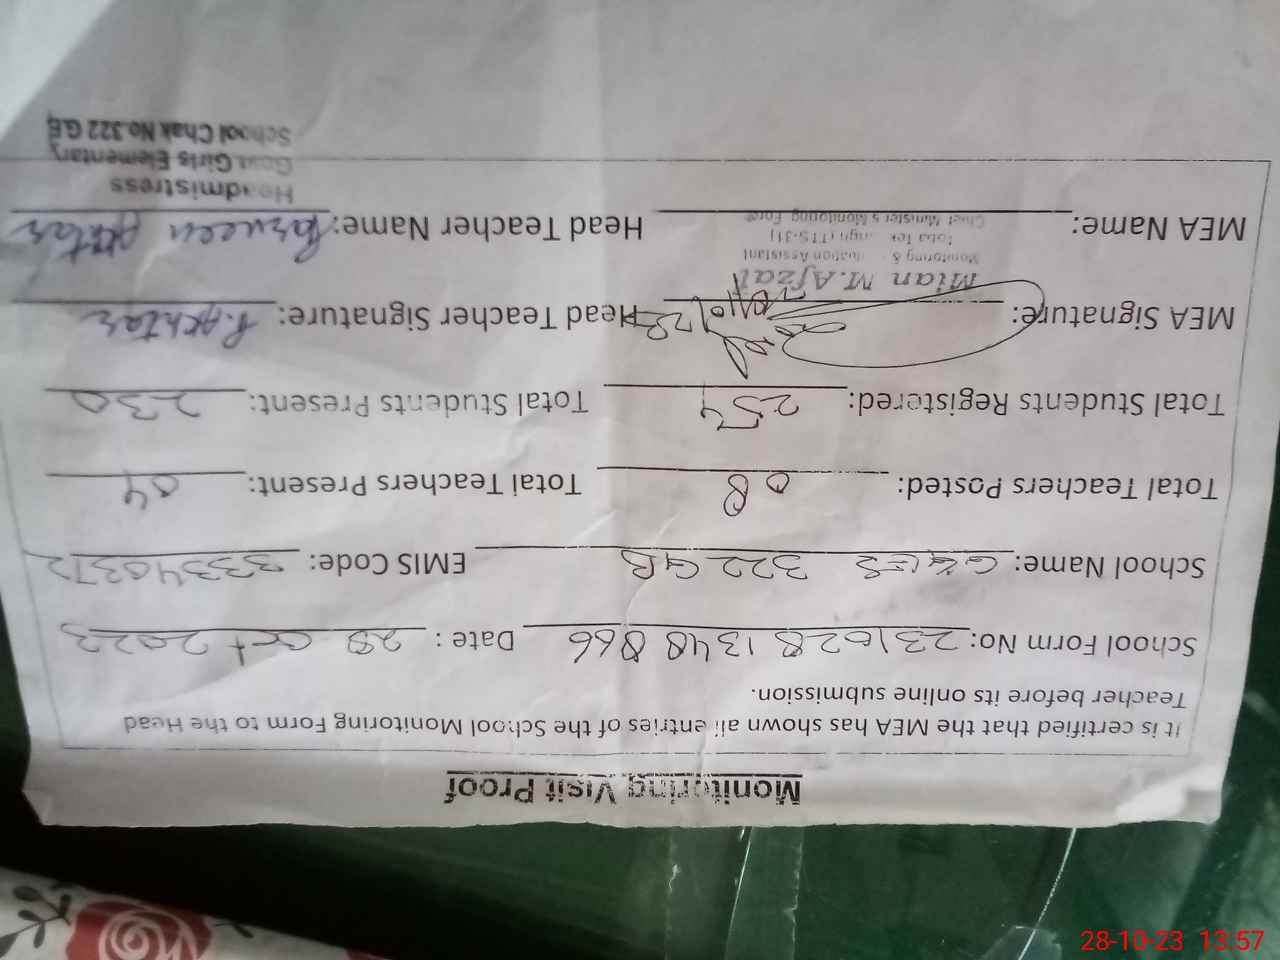 Monitoring Visit Proof
It is certified that the MEA has shown all entries of the School Monitoring Form to the Head
Teacher before its online submission.
School Form No: 231028 1348 866 Date: 28 Oct 2023
School Name: GGES 322 GB EMIS Code: 33340372
Total Teachers Posted: 08 Total Teachers Present: 04
Total Students Registered: 254 Total Students Present: 230
MEA Signature: Head Teacher Signature: P. Akhtar
Mian M. Afzal
Monitoring & Assistant
Toba Tek (TTS-31)
Chief Minister's Monitoring Force
MEA Name: Head Teacher Name: Parveen Akhtar
Headmistress
Govt Girls Elementary
School Chak No.322 GB
28-10-23 13:57